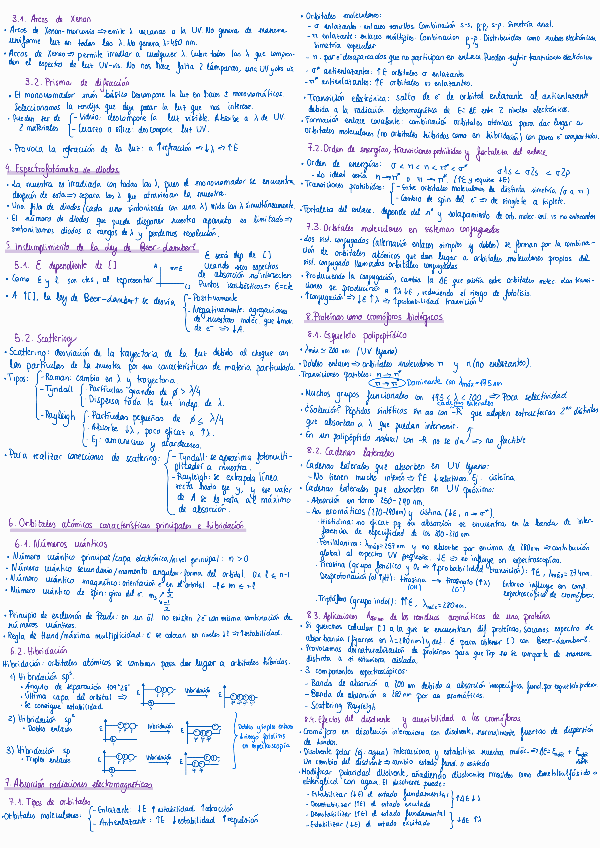 3.1. Arcos de Xenon
• Arcos de Xenon-mercurio ⇒ emite λ cercanas a la UV. No genera de manera
uniforme luz en todas las λ. No genera λ > 450 nm.
• Arcos de Xenon ⇒ permite irradiar a cualquier λ. Cubre todas las λ que compo-
nen el espectro de luz UV-vis. No nos hace falta 2 lámparas, una UV y otra vis
3.2. Prisma de difracción
• El monocromador más básico. Descompone la luz en haces monocromáticos
Seleccionamos la rendija que deje pasar la luz que nos interese.
• Pueden ser de 2 materiales
- Vidrio: descompone la luz visible. Absorbe a λ de UV
- Cuarzo o sílice: descompone luz UV.
• Provoca la refracción de la luz: a ↑refracción ⇒ ↓λ ⇒ ↑E
4. Espectrofotómetro de diodos
• La muestra es irradiada con todas las λ, pues el monocromador se encuentra
después de esta ⇒ separa las λ que atraviesan la muestra.
• Una fila de diodos (cada uno sintonizado con una λ) mide las λ simultáneamente
• El número de diodos que puede disponer nuestro aparato es limitado ⇒
sintonizamos diodos a rangos de λ y perdemos resolución.
5. Incumplimiento de la ley de Beer-Lambert
5.1. E dependiente de []
E será dep de []
Cuando varios espectros
de absorción no intersecten
Puntos isosbésticos ⇒ E=cte
• Como E y l son ctes, al representar
• A ↑[], la ley de Beer-Lambert se desvía
- Positivamente.
- Negativamente: agregaciones
de nuestras molec que limit
de e⁻ ⇒ ↓A.
5.2. Scattering
• Scattering: desviación de la trayectoria de la luz debido al choque con
las partículas de la muestra por sus características de materia particulada.
• Tipos:
- Raman: cambio en λ y trayectoria
- Tyndall
Partículas grandes de ϕ > λ/4
Dispersa toda la luz indep de λ.
- Rayleigh
- Partículas pequeñas de ϕ ≤ λ/4
- Absorbe ↓λ, poco eficaz a ↑λ.
- Ej: amaneceres y atardeceres.
• Para realizar correciones de scattering:
- Tyndall: se aproxima fotomulti-
plicador a muestra.
- Rayleigh: se extrapola línea
recta hasta eje y, y ese valor
de A se le resta a la máxima
de absorción.
6. Orbitales atómicos características principales e hibridación
6.1. Números cuánticos
• Número cuántico principal/capa electrónica/nivel principal: n > 0
• Número cuántico secundario/momento angular: forma del orbital. 0 ≤ l ≤ n-1
• Número cuántico magnético: orientación e⁻ en el orbital -l ≤ m ≤ +l
• Número cuántico de spin: giro del e⁻
• Principio de exclusión de Pauli: en un ól no existen 2e⁻ con misma combinación de
números cuánticos.
• Regla de Hund/máxima multiplicidad: e⁻ se colocan en niveles ↓E ⇒ ↑estabilidad
6.2. Hibridación
Hibridación: orbitales atómicos se combinan para dar lugar a orbitales híbridos.
1) Hibridación sp³
• Ángulo de separación 109°28''
• Última capa del orbital ⇒
• Se consigue estabilidad
Hibridación
2) Hibridación sp²
• Dobles enlaces
Hibridación
3) Hibridación sp
• Triples enlaces
Hibridación
Dobles y triples enlaces
en espectroscopía
7. Absorción radiaciones electromagnéticas
7.1. Tipos de orbitales
• Orbitales moleculares:
- Enlazante ↓E ↑estabilidad ↑atracción
- Antienlazante: ↑E ↓estabilidad ↑repulsión
• Orbitales moleculares:
- σ enlazante: enlaces sencillos. Combinación s-s, p-p, s-p. Simetría axial.
- π enlazante: enlaces múltiples. Combinación p-p. Distribuidos como nubes electrónicas.
Simetría especular
- n: pares desapareados que no participan en enlaces. Pueden sufrir transiciones electrónicas
- σ* antienlazantes: ↑E orbitales σ enlazantes
- π* antienlazantes: ↑E orbitales π enlazantes.
• Transición eléctronica: salto de e⁻ de orbital enlazante al antienlazante
debido a la radiación electromagnética de E = ΔE entre 2 niveles electrónicos.
• Formación enlace covalente: combinación orbitales atómicos para dar lugar a
orbitales moleculares (no orbitales híbridos como en hibridación) con pares e⁻ compartidos.
7.2. Orden de energías, transiciones prohibidas y fortaleza del enlace
• Orden de energías: σ < π < n < π* < σ*
σ1s < σ2s < σ2p
- Lo ideal sería n→π* o π→π* (↑E y requiere ↓E)
• Transiciones prohibidas:
- Entre orbitales moleculares de distinta simetría (σ a π)
- Cambio de spin del e⁻ ⇒ de singlete a triplete.
• Fortaleza del enlace: depende del nº y solapamiento de orb. molec. en los no enlazantes
7.3. Orbitales moleculares en sistemas conjugados
• Los sist. conjugados (alternación enlaces simples y dobles) se forman por la combina-
ción de orbitales atómicos que dan lugar a orbitales moleculares propios del
sist. conjugado llamados orbitales conjugados
• Produciendo la conjugación, cambia la ΔE que existe entre orbitales molec. Las transi-
ciones se producirán a ↑λ ↓E, reduciendo el riesgo de fotólisis.
↑Conjugación ⇒ ↓E ↑λ ⇒ ↑probabilidad transición
8. Proteínas como cromóforos biológicos
8.1. Esqueleto polipeptídico
• λmáx ≤ 200 nm (UV lejano)
• Dobles enlaces ⇒ orbitales moleculares π y n (no enlazantes).
• Transiciones posibles:
n → π*
π → π* Dominante con λmáx = 175 nm
• Muchos grupos funcionales con 175 ≤ λ ≤ 200 ⇒ Poca selectividad
cadenas laterales
• Solución? Péptidos sintéticos en aa con -R que adopten estructuras 2ᵃʳⁱᵃ distintas
que absorban a λ que puedan intervenir
• En un polipéptido normal con -R no se da ⇒ no factible
8.2. Cadenas laterales
• Cadenas laterales que absorben en UV lejano:
- No tienen mucho interés ⇒ ↑E ↓selectivas. Ej: cisteína.
• Cadenas laterales que absorben en UV próximo:
- Absorción en torno 250-290 nm.
- Aa aromáticos (270-290 nm) y cistina (↓E, n→σ*).
· Histidina: no eficaz pq su absorción se encuentra en la banda de inter-
ferencia de especificidad de los 180-210 nm
· Fenilalanina: λmáx = 257 nm y no absorbe por encima de 280 nm ⇒ contribución
global al espectro UV pequeña ↓E ⇒ no influye en espectroscopía.
· Tirosina (grupo fenólico y O₂ ⇒ ↑probabilidad transición): ↑E, λmáx = 274 nm.
Desprotonación (al ↑pH): tirosina → tirosinato (↑λ)
(OH) (O⁻)
Entorno influye en comp.
espectroscópico de cromóforos.
· Triptófano (grupo indol): ↑↑E, λmáx = 280 nm.
8.3. Aplicaciones A280nm de los residuos aromáticos de una proteína
• Si queremos calcular [] a la que se encuentran dif. proteínas, sacamos espectro de
absorbancia (fijarnos en λ = 280 nm) y det. E para obtener [] con Beer-Lambert.
• Provocamos desnaturalización de proteínas para que Trp no se comporte de manera
distinta a si estuviera aislada.
• 3 componentes espectroscópicos:
- Banda de absorción a 200 nm debido a absorción inespecífica fund. por esqueleto proteico
- Banda de absorción a 280 nm por aa aromáticos.
- Scattering Rayleigh
8.4. Efectos del disolvente y accesibilidad a los cromóforos
• Cromóforo en disolución interacciona con disolvente, normalmente fuerzas de dispersión
de London.
• Disolvente polar (ej. agua): Interacciona y estabiliza nuestra molec ⇒ ΔE =
Un cambio del disolvente ⇒ cambio estado fund. o excitado
• Modificar polaridad disolvente, añadiendo disolventes miscibles como dimetilsulfóxido o
etilenglicol con agua. El disolvente puede:
- Estabilizar (↓E) el estado fundamental
- Desestabilizar (↑E) el estado excitado
↑ΔE ↓λ
- Desestabilizar (↑E) el estado fundamental
- Estabilizar (↓E) el estado excitado
↓ΔE ↑λ